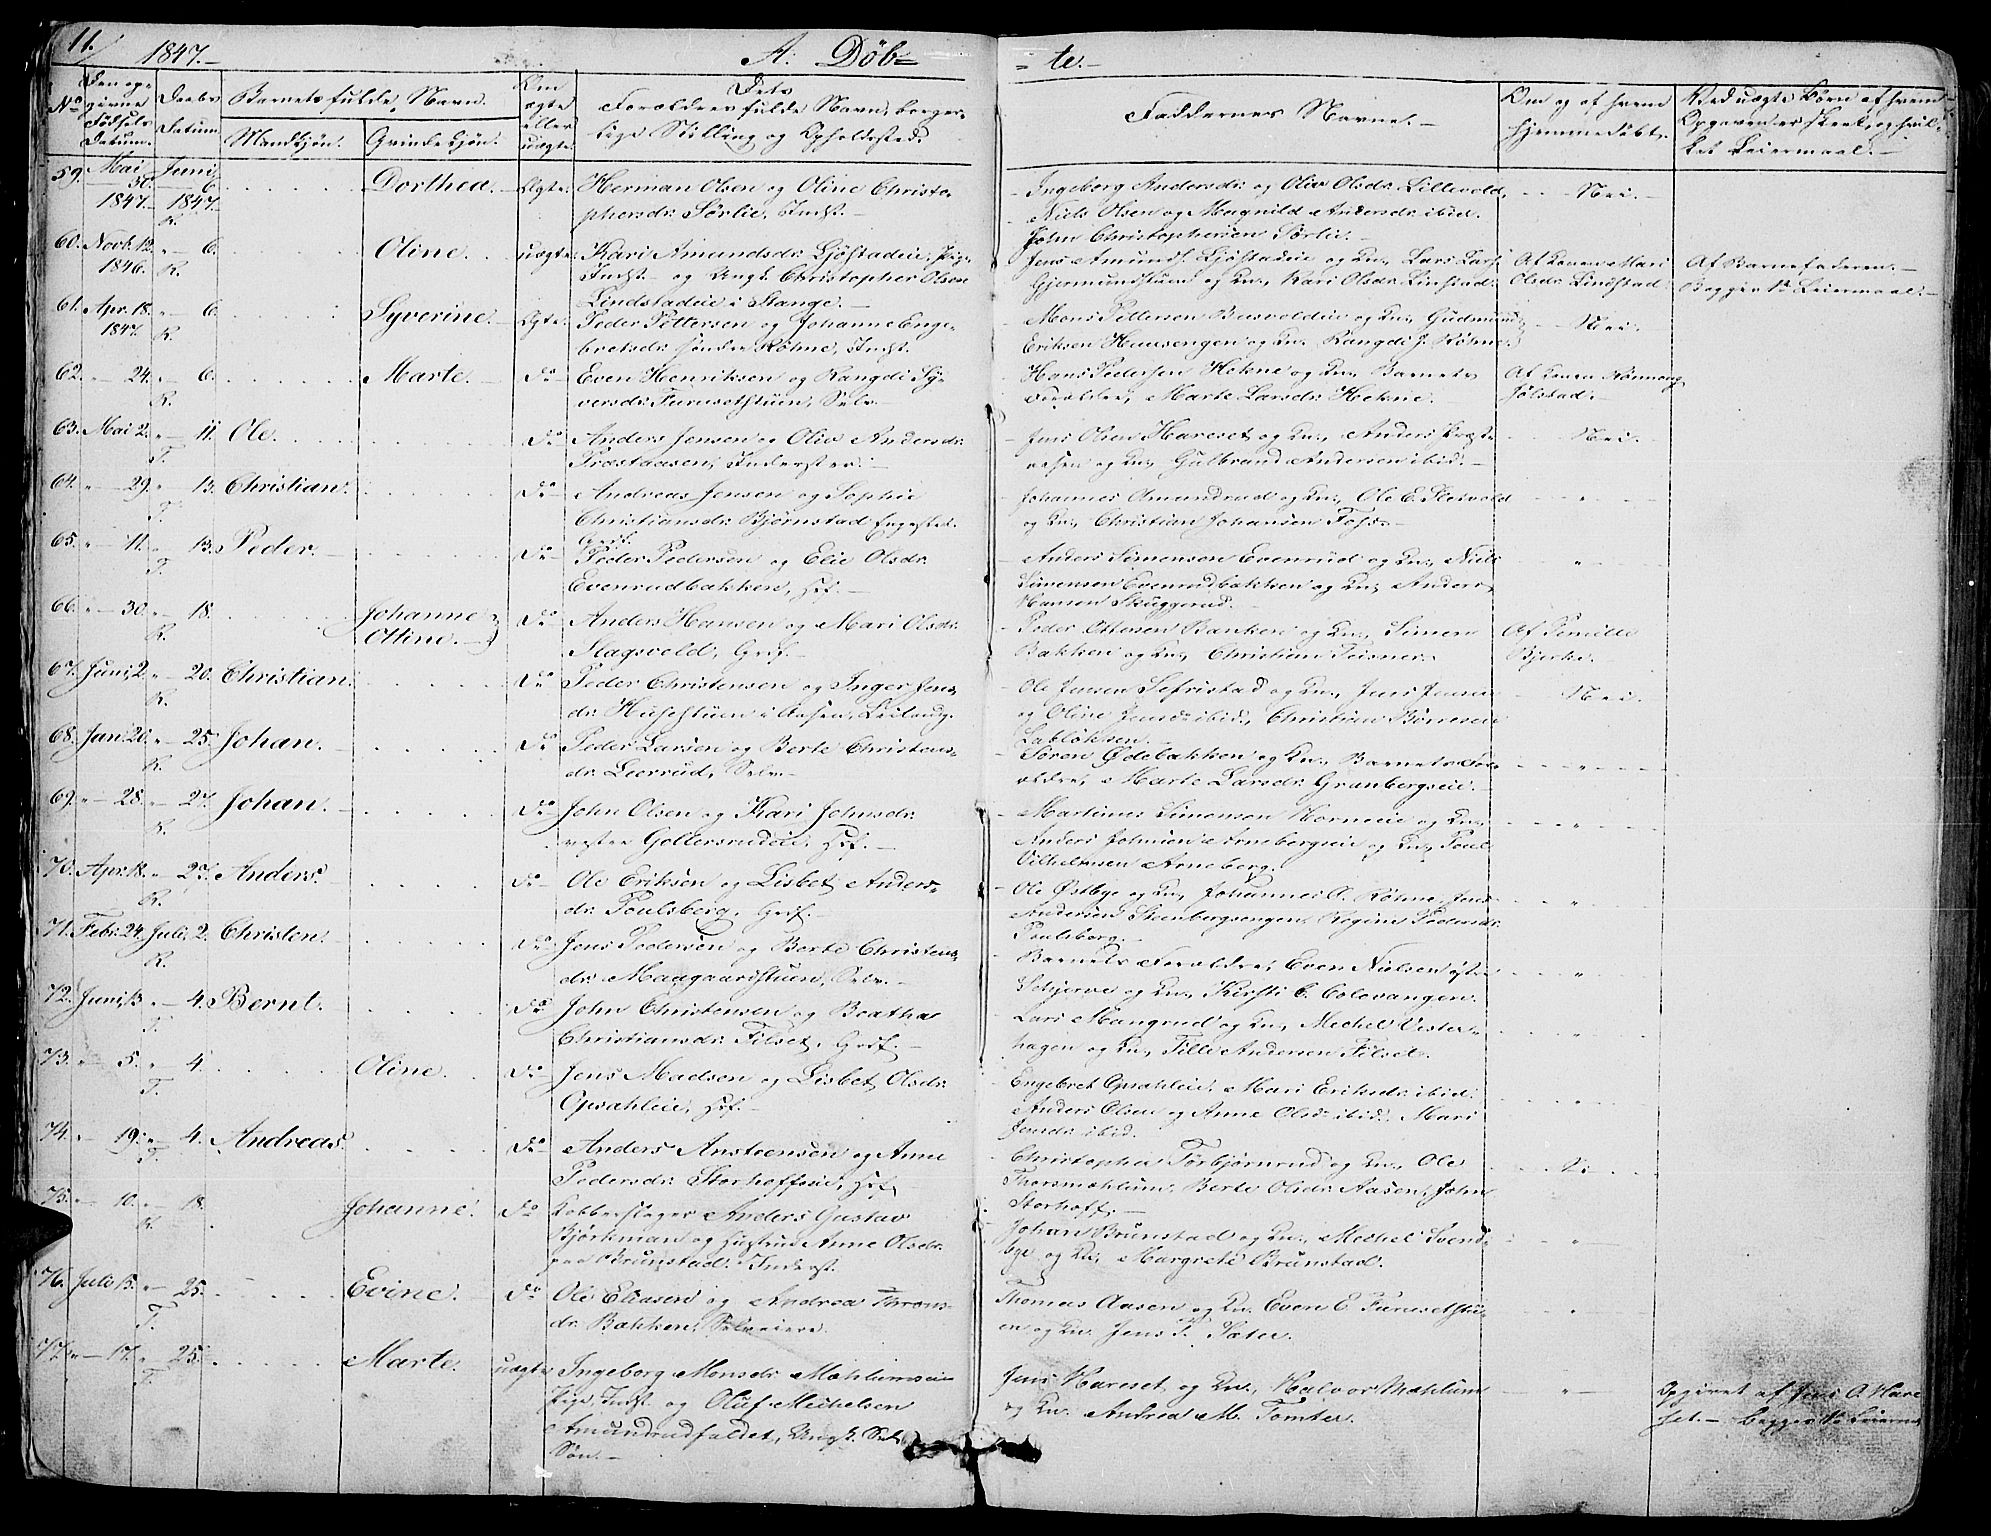 11.
1847.-
A. Döb= = te.-
No
Den op-
givne
Födsels
Datum.
Daabs
Datum.
Barnets fulde Navn.
Mandkjön. Qvindekjön.
Om
ægte
eller
uægte
Dets
Forældres fulde Navn, borger-
lige Stilling og Opholdssted.
Faddernes Navne.-
Om og af hvem
hjemmedöbt.
Ved uægte Börn af hvem
Opgaven er skeet, og hvil-
ket Leiermaal.-
59. Mai 30. 1847.- Juni 6. 1847.- R. Dorthea.- Ægte. Herman Olsen og Oline Christo-
phersdr. Sörlie, Indst.-
Ingeborg Andersdr. og Oliv Olsdr. Lillevold,
Niels Olsen og Magnild Andersdr. ibid.
John Christophersen Sörlie.-
Nei.-
60. Novb. 12. 1846. "- 6. R. Oline. uægte. Kari Amundsdr. Ljöstadeie, Pige
Indst.- og Ungk. Christopher Olsen
Lindstadeie i Stange.-
Jens Amunds. Ljöstadeie og Kn., Lars Lars.
Gjermundstuen og Kn., Kari Olsdr. Linstad.
Af Konen Mari
Olsdr. Lindstad.
Af Barnefaderen.-
Begges 1te Leiermaal.-
61. Apr. 18. 1847. "- 6. R. Syverine.- Ægte. Peder Pettersen og Johanne Enge-
bretsdr. söndre Röhne, Indst.
Mons Pettersen Busvoldeie og Kn., Gudmund
Eriksen Hausengen og Kn., Rangdi J. Röhne.
Nei.
62. "- 24. "- 6. R. Marte.- Do Even Henriksen og Rangdi Sy-
versdr. Furusetstuen, Selv.-
Hans Pedersen Hokne og Kn., Barnets
Forældre, Marte Larsdr. Hokne.
Af Konen Rönnoug
Jölstad.
63. Mai 2. "- 11. T. Ole. Do Anders Jensen og Oliv Andersdr.
Præstaasen, Inderster.-
Jens Olsen Hareset og Kn., Anders Præst-
aasen og Kn., Gulbrand Andersen ibid.-
Nei.
64. "- 29. "- 13. T. Christian. Do Andreas Jensen og Sophie
Christiansdr. Björnstad Engested.
Grdf.
Johannes Amundrud og Kn., Ole E. Fleivold
og Kn., Christian Johansen Fohs.-
"
65. "- 11. "- 13. T. Peder.- Do Peder Pedersen og Elie Olsdr.
Evenrudbakken, Hsf.-
Anders Simensen Evenrud og Kn., Niels
Simensen Evenrudbakken og Kn., Anders
Hansen Skuggerud.-
"
66. "- 30. "- 18. R. Johanne
Ottine.- Do Anders Hansen og Mari Olsdr.
Slagsvold, Grdf.-
Peder Ottersen Banken og Kn., Simen
Bakken og Kn., Christian Teisner.
Af Pernille
Bjerke.-
67. Juni 2. "- 20. R. Christian. Do Peder Christensen og Inger Jens-
dr. Husestuen i Aasen, Leilændg.
Ole Jensen Sefristad og Kn., Jens Jensen
og Oline Jensdr. ibid., Christian Börresen
Lablökken.
Nei.
68. Jan. 20. "- 25. R. Johan. Do Peder Larsen og Berte Christens-
dr. Leerrud, Selv.-
Sören Ödebakken og Kn., Barnets For-
ældre, Marte Larsdr. Granbergseie.-
"
69. "- 28. "- 27. R. Johan. Do John Olsen og Kari Johnsdr.
vestre Gollersrudeie, Hsf.-
Martinus Simensen Horneie og Kn.,
Anders Johnsen Arnebergseie og Kn., Poul
Vilhelmsen Arneberg.
"
70. Apr. 18. "- 27. R. Anders. Do Ole Eriksen og Lisbet Anders-
dr. Poulsberg, Grdf.
Ole Östbye og Kn., Johannes A. Röhne, Jens
Andersen Stenbergsengen, Regine Pedersdr.
Poulsberg.-
"
71. Febr. 24. Juli 2. R. Christen. Do Jens Pedersen og Berte Christens-
dr. Maagaardstuen, Selv.-
Barnets Forældre, Even Nielsen östre
Schjerve og Kn., Kirsti C. Colovangen.
"
72. Juni 13 "- 4. T. Bernt. Do John Christensen og Beathe
Christiansdr. Filset, Grdf.-
Lars Mangrud og Kn., Mechel Vester-
hagen og Kn., Tille Andersen Filset.
"
73. "- 5. "- 4. T. Oline. Do Jens Madsen og Lisbet Olsdr.
Opsahleie, Hsf.-
Engebret Opsahleie, Mari Eriksdr. ibid.
Anders Olsen og Anne Olsdr. ibid., Mari
Jensdr. ibid.
"
74. "- 19. "- 4. T. Andreas. Do Anders Anstensen og Anne
Pedersdr. Storhoffseie, Hsf.
Christopher Törbjörnrud og Kn., Ole
Thorsmæhlum, Berte Olsdr. Aasen, John
Storhoff.-
75. "- 10. "- 18. R. Johanne. Do Kobberslager Anders Gustav
Björkman og Hustrue Anne Olsdr.
paa Brunstad. Inderst.
Johan Brunstad og Kn., Mechel Svend-
bye og Kn., Margrete Brunstad.
"
76. Juli 15. "- 25. T. Evine. Do Ole Eliasen og Andrea Throns-
dr. Bakken, Selveiere.
Thomas Aasen og Kn. Even E. Furusetstu-
en og Kn. Jens T. Sæter.
"
77. "- 17. "- 25. T. Marte. uægte Ingeborg Monsdr. Mæhlumseie
Pige, Indst. og Oluf Michelsen
Amundrudfaldet, Ungk. Selv.
Sön.-
Jens Hareset og Kn., Halvor Mæhlum
og Kn. Andrea M. Tomter.
"
Opgivet af Jens O. Hare
set.- Begges 1te Leierm.